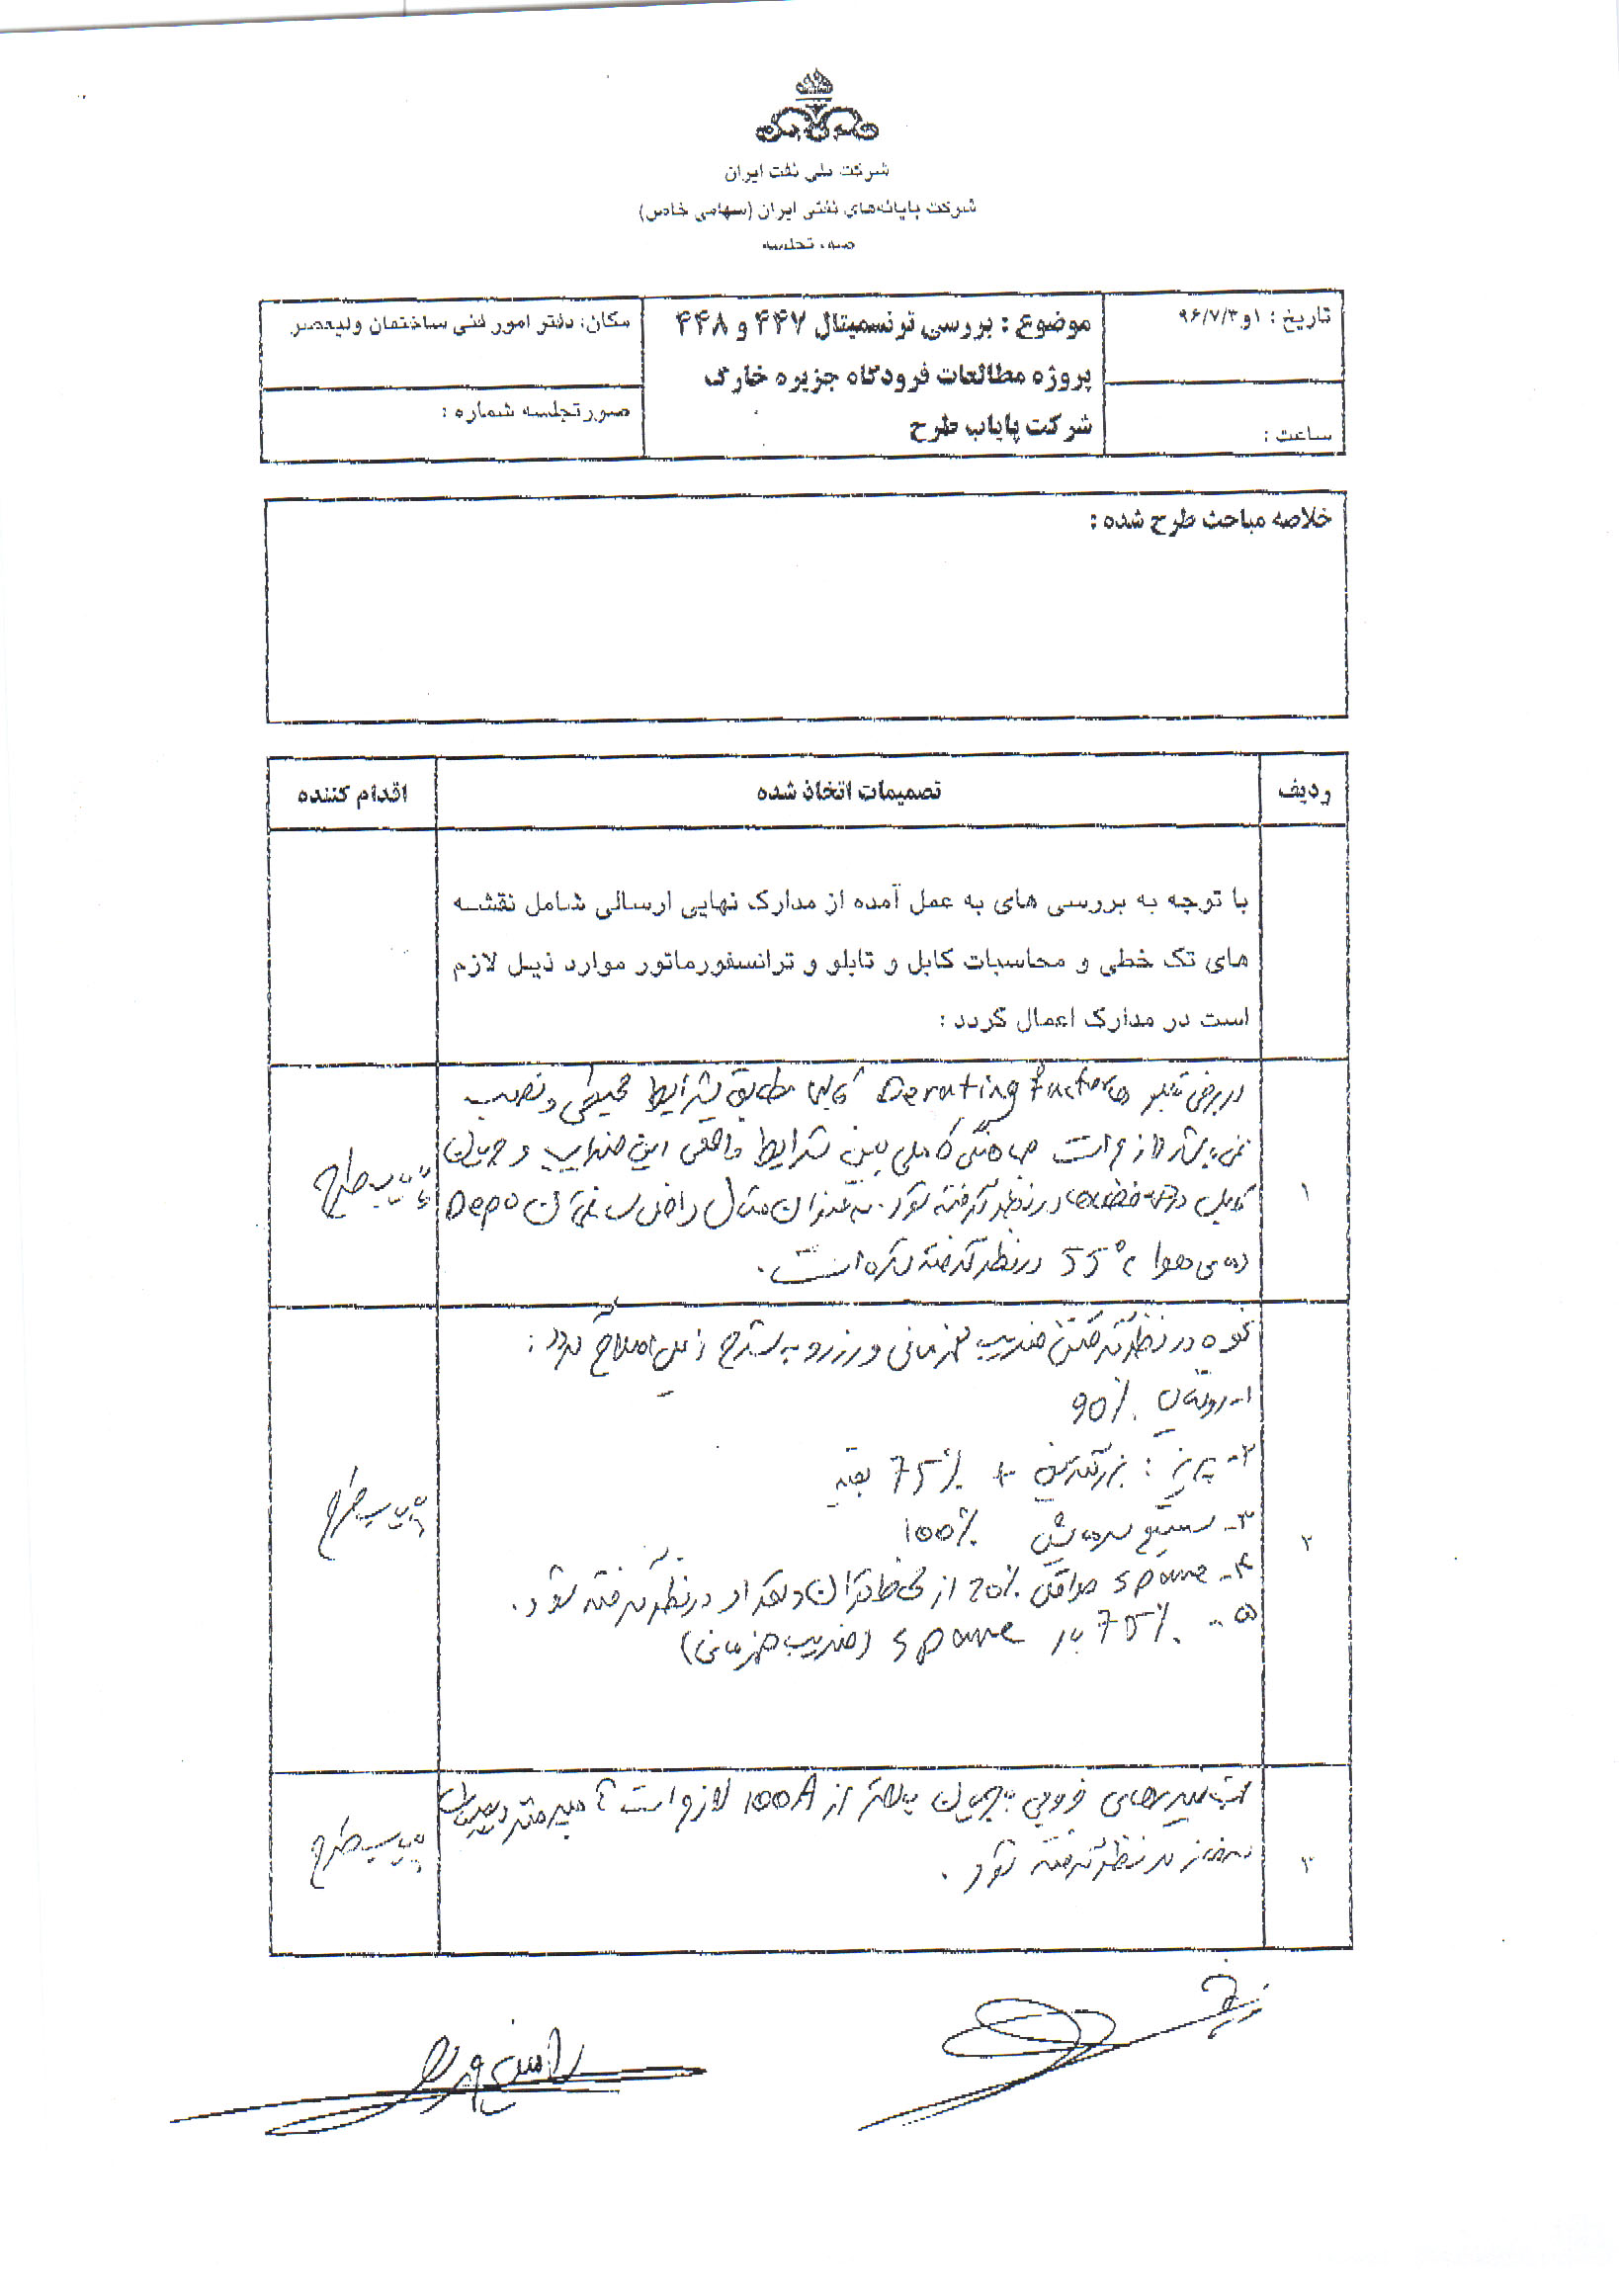 شرکت ملی نفت ایران
شرکت پایانه‌های نفتی ایران (سهامی خاص)
صورتجلسه
تاریخ : ۱و۹۶/۷/۳
ساعت :
موضوع : بررسی ترنسمیتال ۴۴۷ و ۴۴۸
پروژه مطالعات فرودگاه جزیره خارک
شرکت پایاب طرح
مکان: دفتر امور فنی ساختمان ولیعصر
صورتجلسه شماره :
خلاصه مباحث طرح شده :
ردیف تصمیمات اتخاذ شده اقدام کننده
با توجه به بررسی های به عمل آمده از مدارک نهایی ارسالی شامل نقشه
های تک خطی و محاسبات کابل و تابلو و ترانسفورماتور موارد ذیل لازم
است در مدارک اعمال گردد :
۱
در برخی تابلو ها Derating factor کابل مطابق شرایط محیطی و نصب
نمی‌باشد لازم است هماهنگی کاملی بین شرایط واقعی این ضرایب و جریان
کابل در نظر گرفته شود. به عنوان مثال داخل ساختمان Depo
دمای هوا 55°c در نظر گرفته شده است.
پایاب طرح
۲
نحوه در نظر گرفتن ضریب همزمانی و رزرو به شرح ذیل اصلاح گردد :
۱- روشنایی 90%
۲- پریز : بزرگترین + 75% بقیه
۳- سیستم سرمایش 100%
۴- spare حداقل 20% از لحاظ توان و تعداد در نظر گرفته شود.
۵- 75% بار spare (ضریب همزمانی)
پایاب طرح
۳
جهت فیدرهای خروجی با جریان بالاتر از 100A لازم است آمپرمتر
سه فاز در نظر گرفته شود.
پایاب طرح